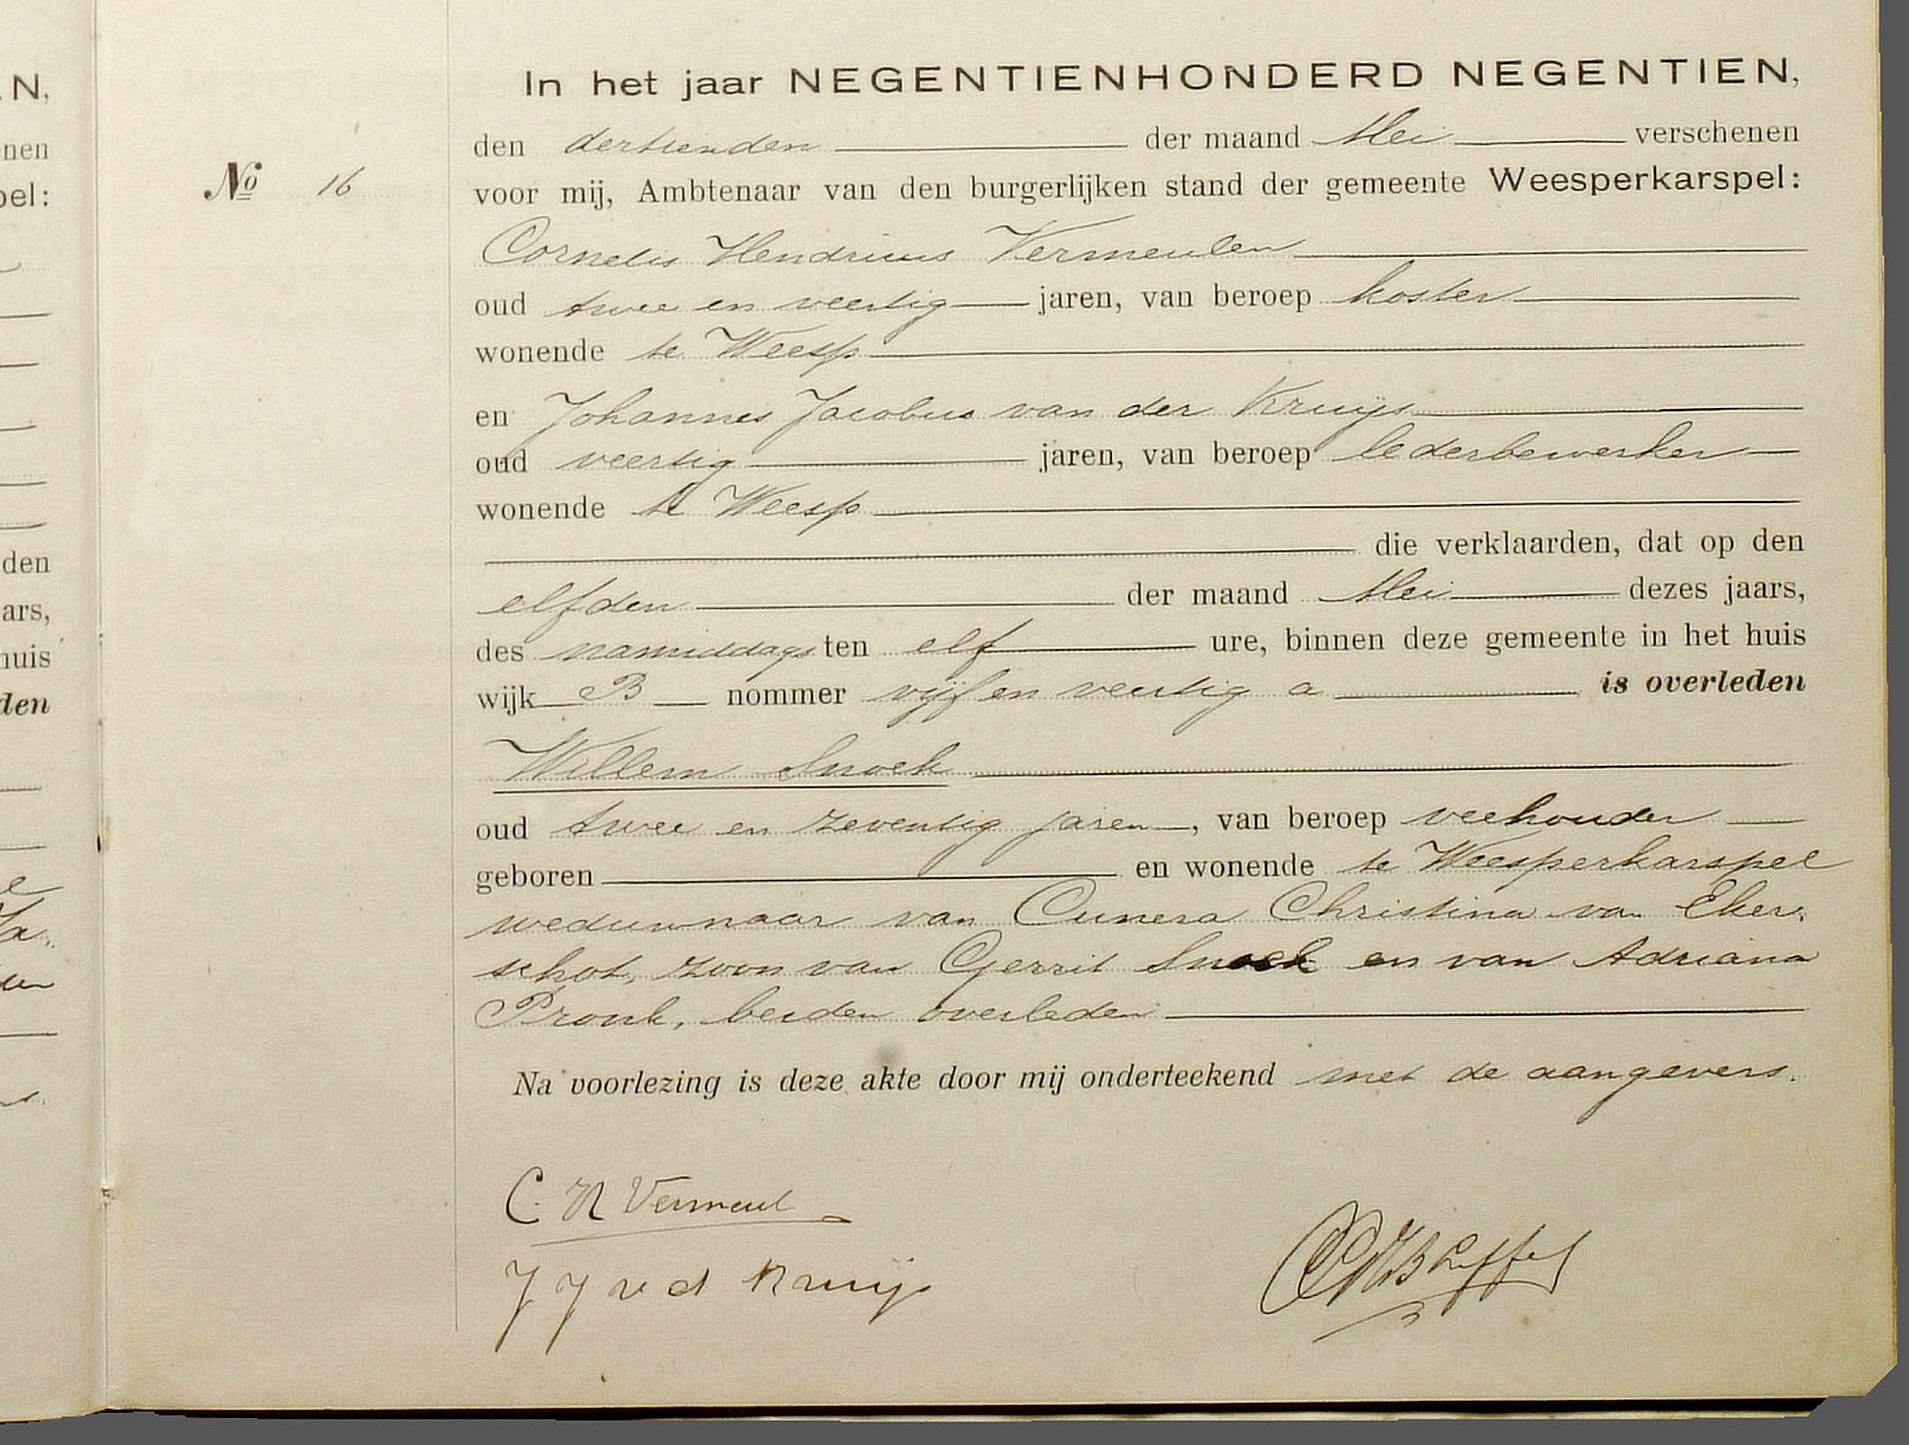 EN,
nen
pel:
den
ars,
huis
den
In het jaar NEGENTIENHONDERD NEGENTIEN,
den dertienden der maand Mei verschenen
No 16
voor mij, Ambtenaar van den burgerlijken stand der gemeente Weesperkarspel:
Cornelis Hendricus Vermeulen
oud twee en veertig jaren, van beroep koster
wonende te Weesp
en Johannes Jacobus van der Kruijs
oud veertig jaren, van beroep lederbewerker
wonende te Weesp
die verklaarden, dat op den
elfden der maand Mei dezes jaars,
des namiddags ten elf ure, binnen deze gemeente in het huis
wijk B nommer vijf en veertig a is overleden
Willem Snoek
oud twee en zeventig jaren, van beroep veehouder
geboren en wonende te Weesperkarspel
weduwnaar van Cunera Christina van Eker-
schot, zoon van Gerrit Snoek en van Adriana
Pronk, beiden overleden
Na voorlezing is deze akte door mij onderteekend met de aangevers.
C. H Vermeul
J J v d Kruijs